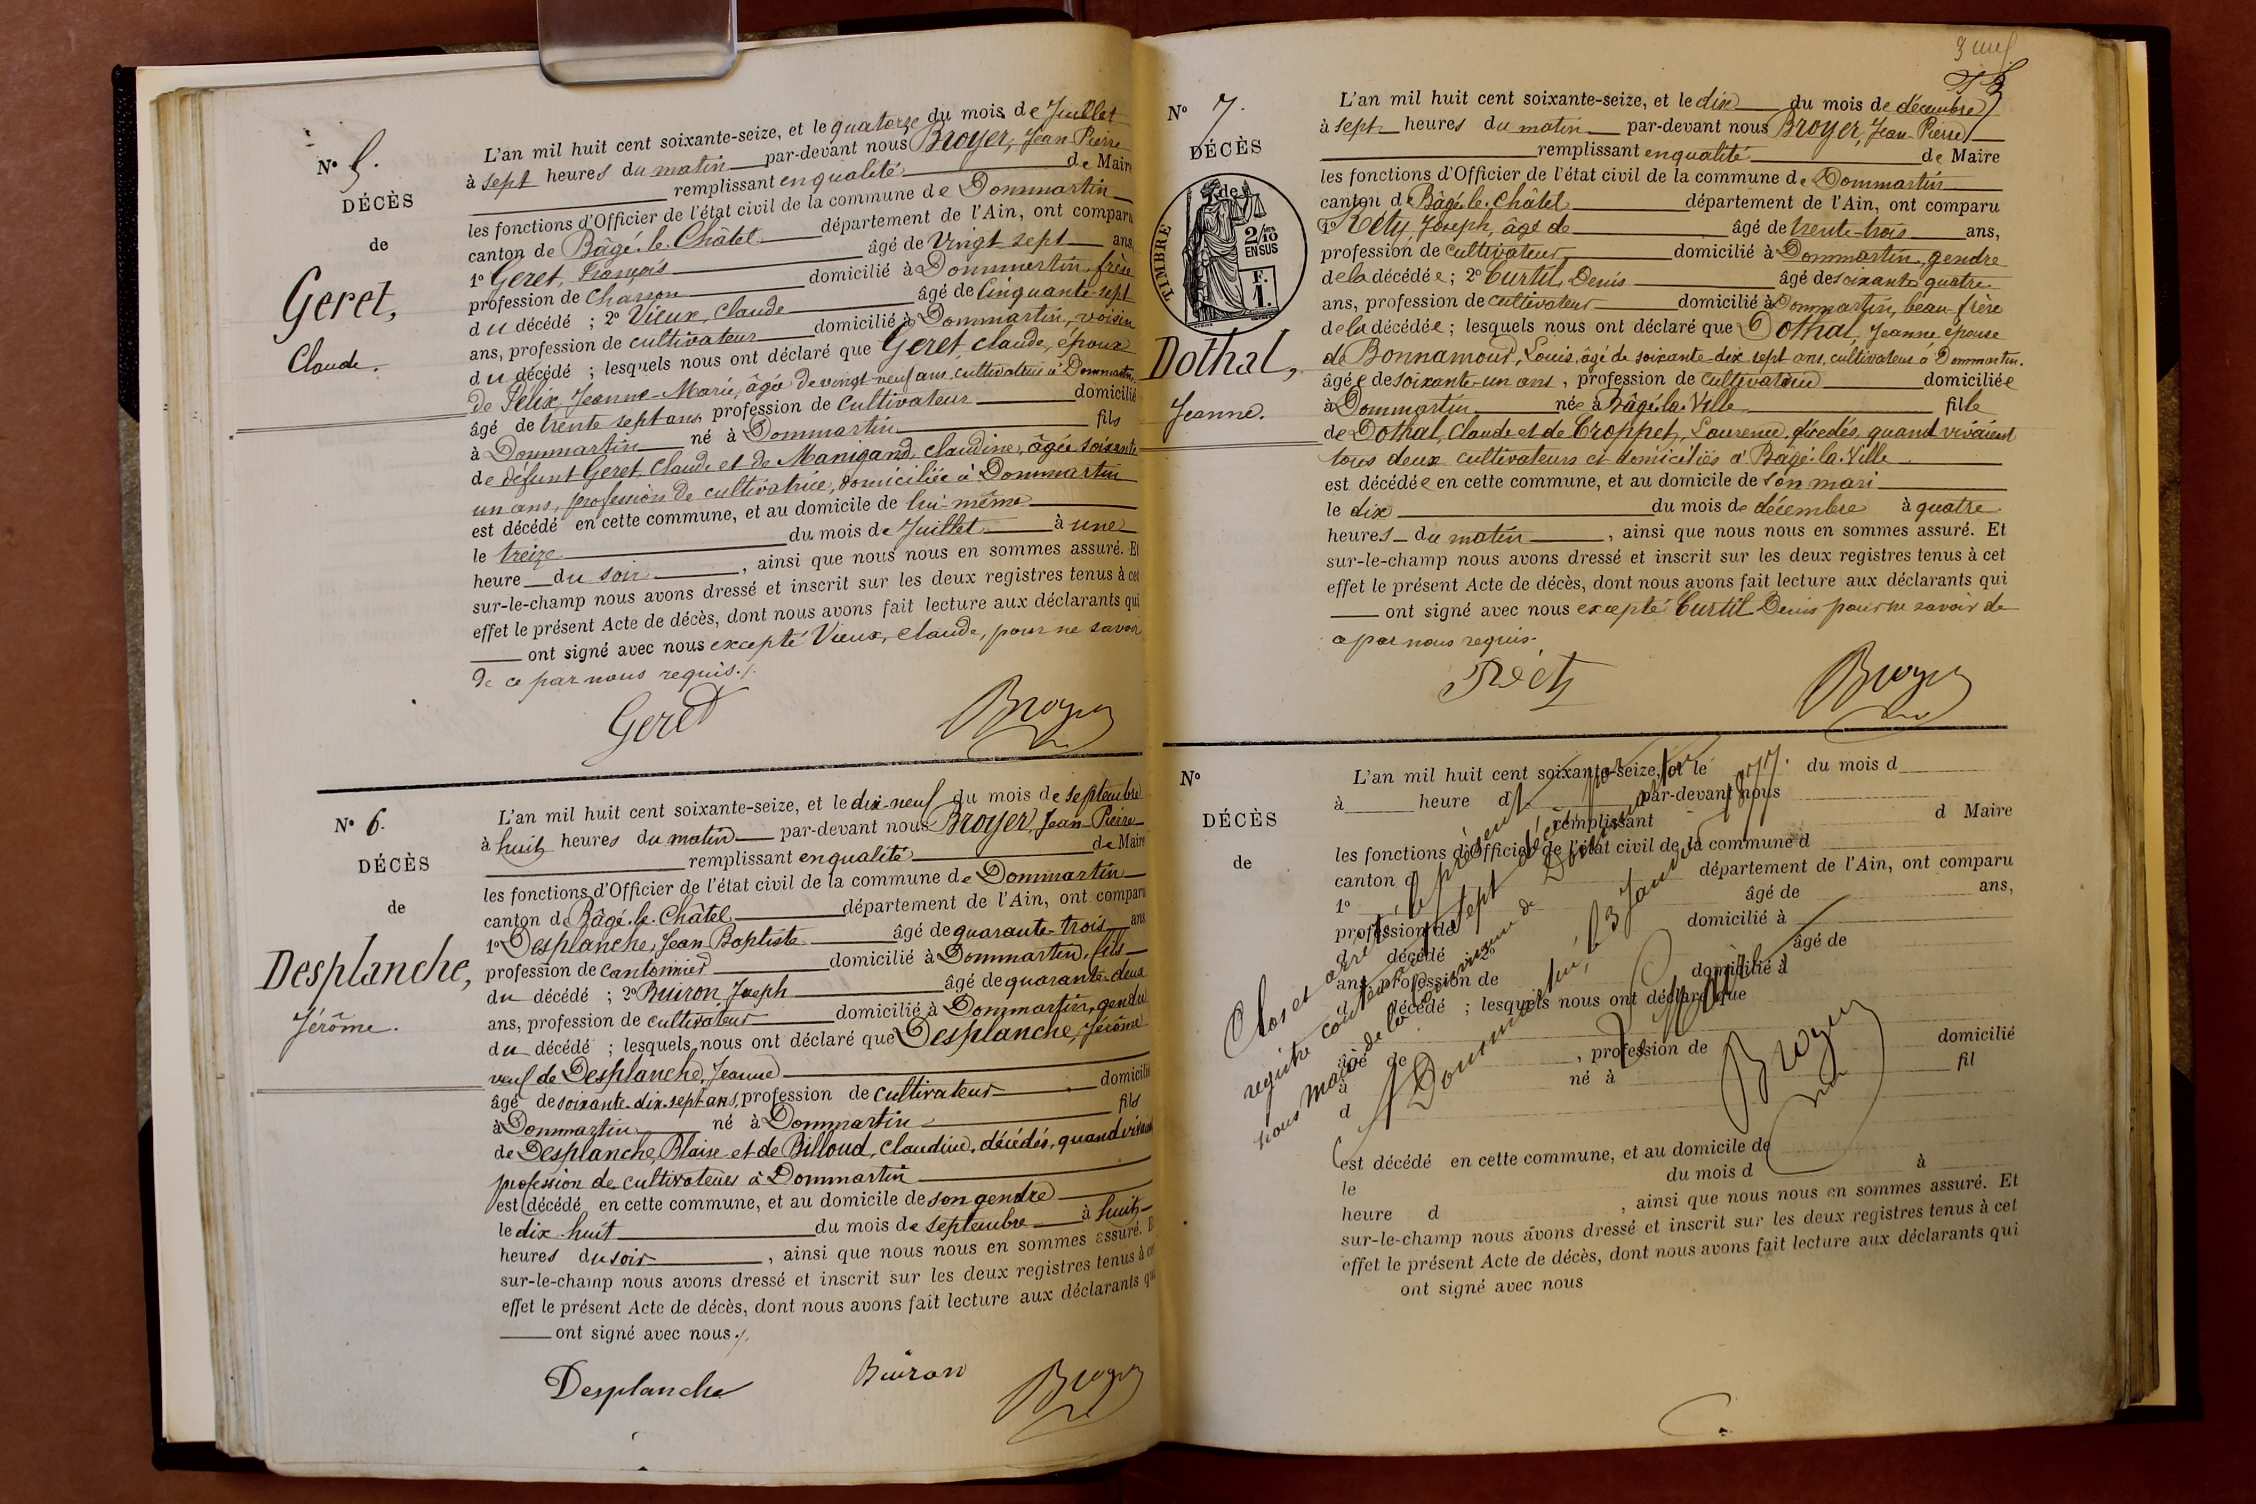 N° 5.
DÉCÈS
de
Geret,
Claude.
L'an mil huit cent soixante-seize, et le quatorze du mois de Juillet
à sept heures du matin par-devant nous Broyer, Jean Pierre
remplissant en qualité de Maire
les fonctions d'Officier de l'état civil de la commune de Dommartin
canton de Bâgé-le-Châtel département de l'Ain, ont comparu
1° Geret, François âgé de vingt sept ans,
profession de Charron domicilié à Dommartin, frère
du décédé ; 2° Vieux, Claude âgé de Cinquante-sept
ans, profession de cultivateur domicilié à Dommartin, voisin
du décédé ; lesquels nous ont déclaré que Geret, Claude, époux
de Félix, Jeanne-Marie, âgée de vingt-neuf ans, cultivatrice à Dommartin
âgé de trente sept ans, profession de Cultivateur domicilié
à Dommartin né à Dommartin fils
de défunt Geret, Claude et de Manigand, Claudine, âgée soixante
un ans, profession de cultivatrice, domiciliée à Dommartin
est décédé en cette commune, et au domicile de lui-même
le treize du mois de Juillet à une
heure du soir, ainsi que nous nous en sommes assuré. Et
sur-le-champ nous avons dressé et inscrit sur les deux registres tenus à cet
effet le présent Acte de décès, dont nous avons fait lecture aux déclarants qui
ont signé avec nous excepté Vieux, Claude, pour ne savoir
de ce par nous requis./.
Geret Broyer
N° 6.
DÉCÈS
de
Desplanche,
Jérôme.
L'an mil huit cent soixante-seize, et le dix-neuf du mois de septembre
à huit heures du matin par-devant nous Broyer, Jean-Pierre
remplissant en qualité de Maire
les fonctions d'Officier de l'état civil de la commune de Dommartin
canton de Bâgé-le-Châtel département de l'Ain, ont comparu
1° Desplanche, Jean Baptiste âgé de quarante-trois ans
profession de Cantonnier domicilié à Dommartin, fils
du décédé ; 2° Buiron, Joseph âgé de quarante-deux
ans, profession de cultivateur domicilié à Dommartin, gendre
du décédé ; lesquels nous ont déclaré que Desplanche, Jérôme
veuf de Desplanche, Jeanne
âgé de soixante-dix-sept ans, profession de cultivateur domicilié
à Dommartin né à Dommartin fils
de Desplanche, Blaise et de Billoud, Claudine, décédés, quand vivaient
profession de cultivateurs à Dommartin
est décédé en cette commune, et au domicile de son gendre
le dix-huit du mois de septembre à huit
heures du soir, ainsi que nous nous en sommes assuré. Et
sur-le-champ nous avons dressé et inscrit sur les deux registres tenus à cet
effet le présent Acte de décès, dont nous avons fait lecture aux déclarants qui
ont signé avec nous./.
Desplanche Buiron Broyer
N° 7.
DÉCÈS
de
TIMBRE
2/10
EN SUS
F.
1.
Dothal,
Jeanne.
L'an mil huit cent soixante-seize, et le dix du mois de décembre
à sept heures du matin par-devant nous Broyer, Jean-Pierre
remplissant en qualité de Maire
les fonctions d'Officier de l'état civil de la commune de Dommartin
canton de Bâgé-le-Châtel département de l'Ain, ont comparu
1° Réty, Joseph, âgé de âgé de trente-trois ans,
profession de cultivateur domicilié à Dommartin, gendre
de la décédée ; 2° Curtil, Denis âgé de soixante quatre
ans, profession de cultivateur domicilié à Dommartin, beau-frère
de la décédée ; lesquels nous ont déclaré que Dothal, Jeanne épouse
de Bonnamour, Louis, âgé de soixante-dix sept ans, cultivateur à Dommartin.
âgée de soixante-un ans, profession de cultivatrice domiciliée
à Dommartin née à Bâgé-la-Ville fille
de Dothal, Claude et de Croppet, Laurence, décédés, quand vivaient
tous deux cultivateurs et domiciliés à Bâgé-la-Ville
est décédée en cette commune, et au domicile de son mari
le dix du mois de décembre à quatre
heures du matin, ainsi que nous nous en sommes assuré. Et
sur-le-champ nous avons dressé et inscrit sur les deux registres tenus à cet
effet le présent Acte de décès, dont nous avons fait lecture aux déclarants qui
ont signé avec nous excepté Curtil Denis pour ne savoir de
ce par nous requis.
Réty Broyer
N°
DÉCÈS
de
L'an mil huit cent soixante-seize, et le du mois d
à heure d par-devant nous
remplissant d Maire
les fonctions d'Officier de l'état civil de la commune d
canton d département de l'Ain, ont comparu
1° âgé de ans,
profession de domicilié à
d décédé ; 2° âgé de
ans, profession de domicilié à
d décédé ; lesquels nous ont déclaré que
âgé de , profession de domicilié
à né à fil
d
est décédé en cette commune, et au domicile de
le du mois d à
heure d , ainsi que nous nous en sommes assuré. Et
sur-le-champ nous avons dressé et inscrit sur les deux registres tenus à cet
effet le présent Acte de décès, dont nous avons fait lecture aux déclarants qui
ont signé avec nous
Clos et arrêté, le présent
registre contenant sept décès par
nous Maire de la Commune de Dommartin
A Dommartin, le 3 Janvier 1877.
Broyer